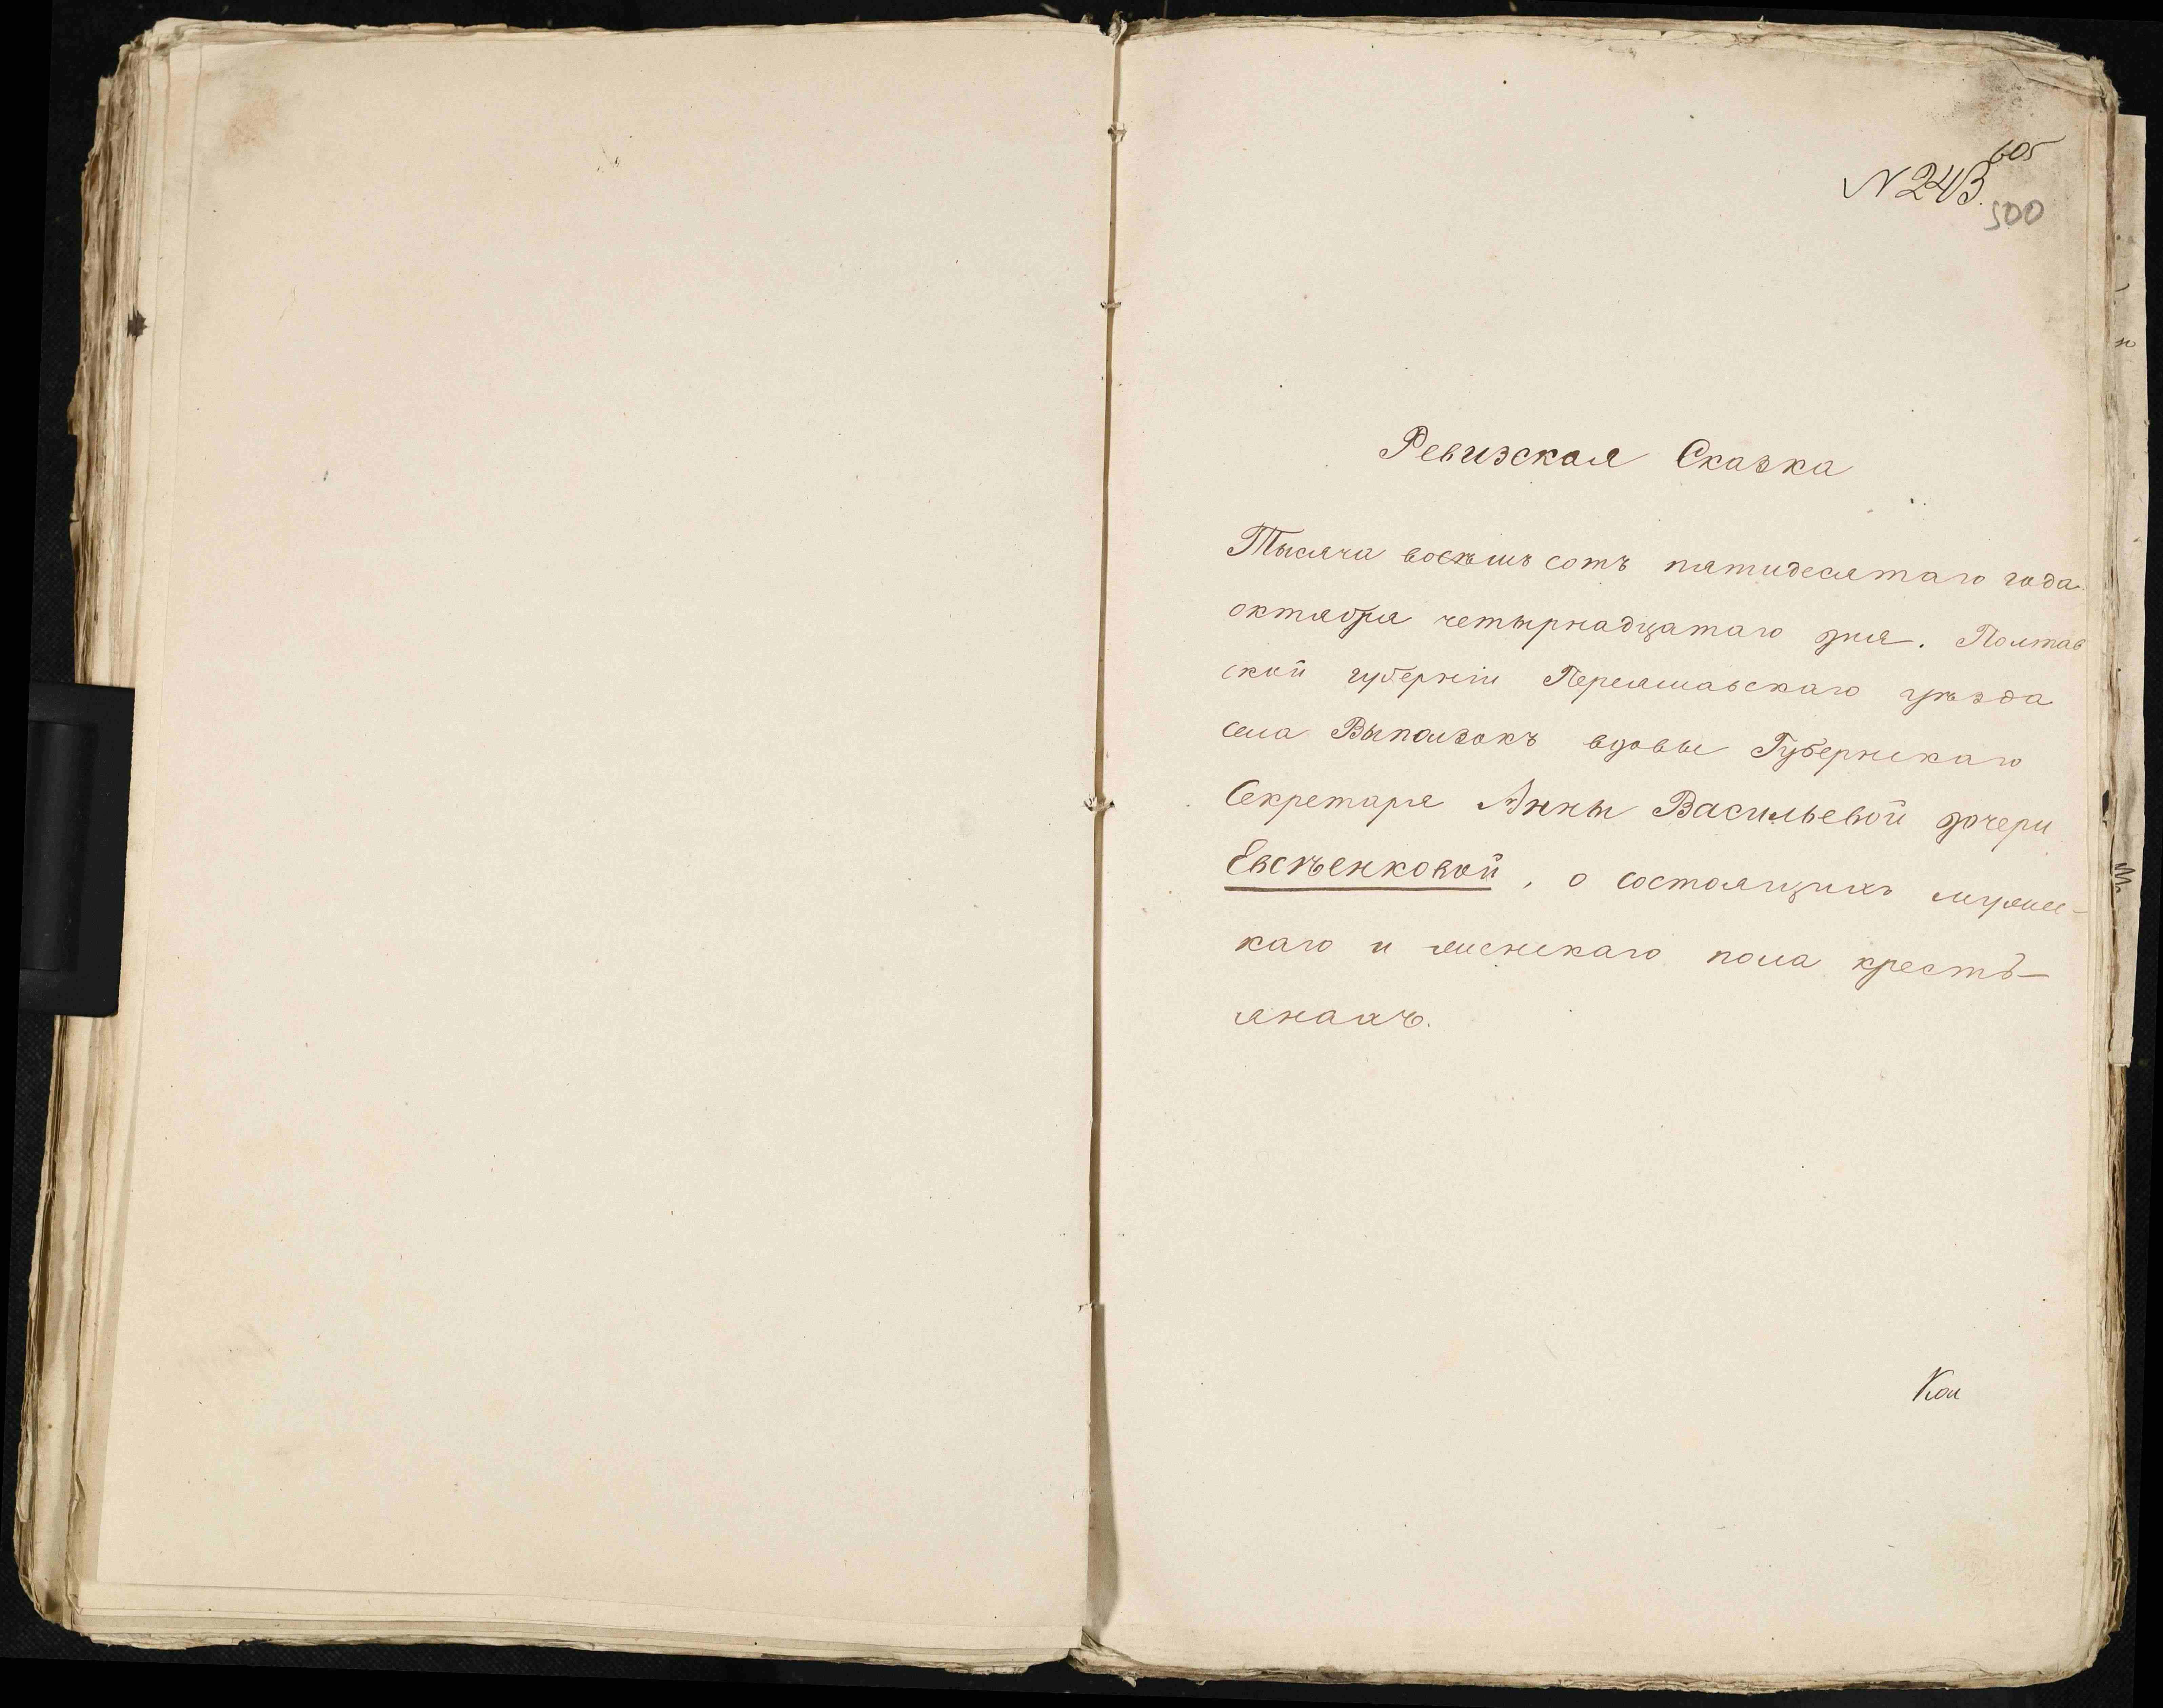 605
N 243.
500
Ревизская Сказка
Тысяча восѣмь сотъ пятидесятаго года
октября четырнадцатаго дня. Полтав
ской губерніи Переяславскаго уѣзда
села Выползокъ вдовы Губернскаго
Секретаря Анны Васильевой дочери
Евсѣенковой, о состоящихъ мужес-
каго и женскаго пола крестъ-
янахъ.